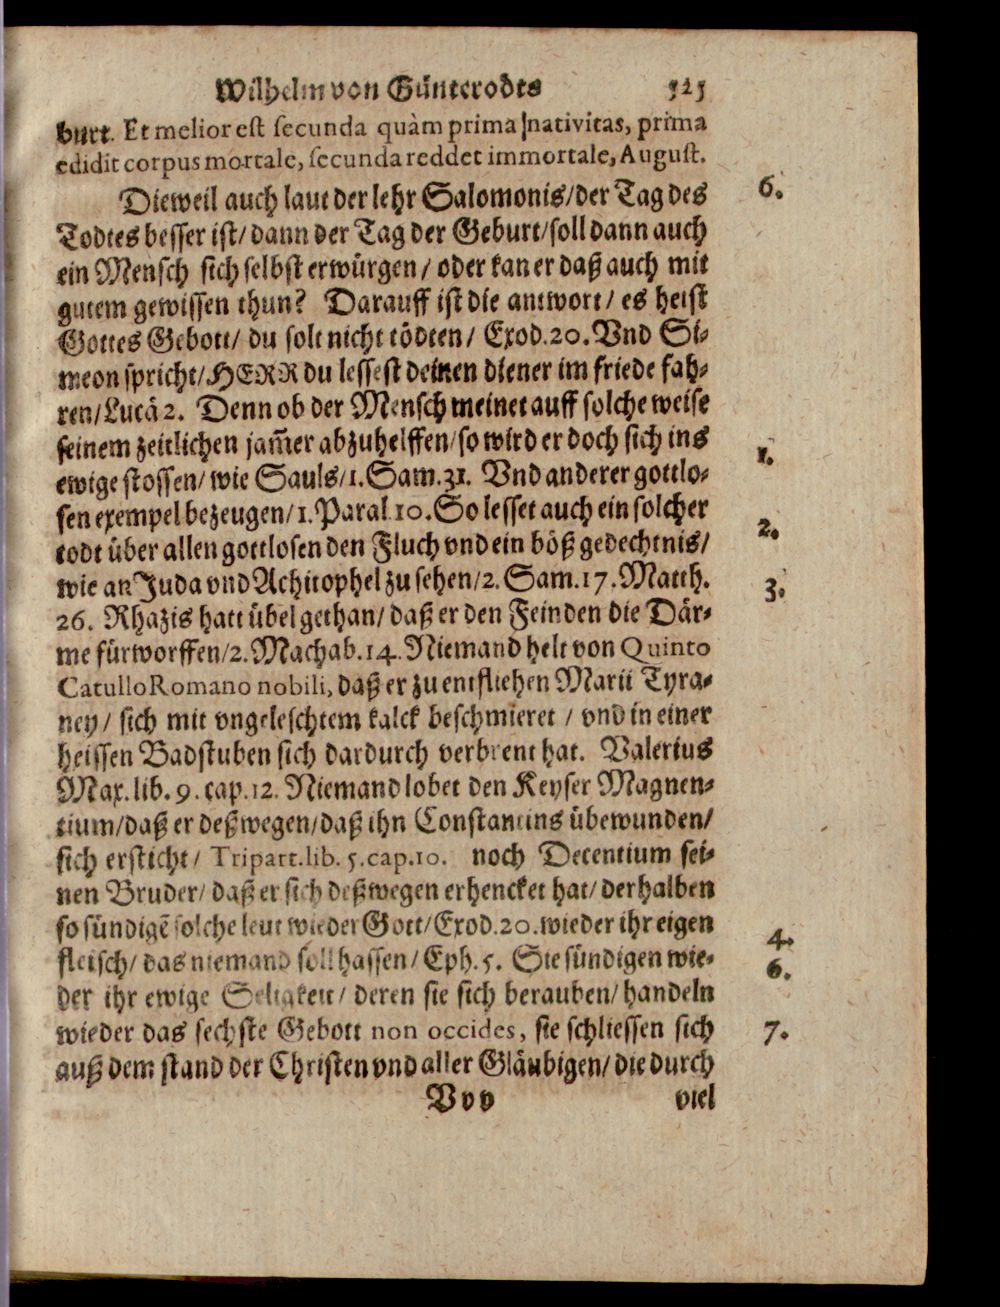 Wilhelm von Günterodts 521
burt. Et melior est secunda quàm prima nativitas, prima
edidit corpus mortale, secunda reddet immortale, August.
Dieweil auch laut der lehr Salomonis/der Tag des 6.
Todtes besser ist/dann der Tag der Geburt/soll dann auch
ein Mensch sich selbst erwürgen/oder kan er daß auch mit
gutem gewissen thun? Darauff ist die antwort/es heist
Gottes Gebott/ du solt nicht tödten/ Exod.20. Vnd Si-
meon spricht/HERR du lessest deinen diener im friede fah-
ren/Lucä 2. Denn ob der Mensch meinet auff solche weise
seinem zeitlichen jam̃er abzuhelffen/so wird er doch sich ins 1.
ewige stossen/ wie Sauls/1. Sam.31. Vnd anderer gottlo-
sen exempel bezeugen/1. Paral 10. So lesset auch ein solcher
todt über allen gottlosen den Fluch vnd ein böß gedechtnis/ 2.
wie an Juda vnd Achitophel zu sehen/2. Sam.17. Matth. 3.
26. Rhazis hatt übel gethan/ daß er den Feinden die Där-
me fürworffen/2. Machab.14. Niemand helt von Quinto
Catullo Romano nobili, daß er zu entfliehen Marii Tyra-
ney/ sich mit vngeleschtem kalck beschmieret / vnd in einer
heissen Badstuben sich dardurch verbrent hat. Valerius
Max. lib. 9. cap. 12. Niemand lobet den Keyser Magnen-
tium/daß er deßwegen/daß ihn Constantins übewunden/
sich ersticht/ Tripart. lib. 5. cap. 10. noch Decentium sei-
nen Bruder/ daß er sich deßwegen erhencket hat/ derhalben
so sündigẽ solche leut wieder Gott/Exod.20. wieder ihr eigen 4.
fleisch/ das niemand soll hassen/ Eph. 5. Sie sündigen wie- 6.
der ihr ewige Seligkeit/ deren sie sich berauben/ handeln
wieder das sechste Gebott non occides, sie schliessen sich 7.
auß dem stand der Christen vnd aller Gläubigen/ die durch
Vvv viel